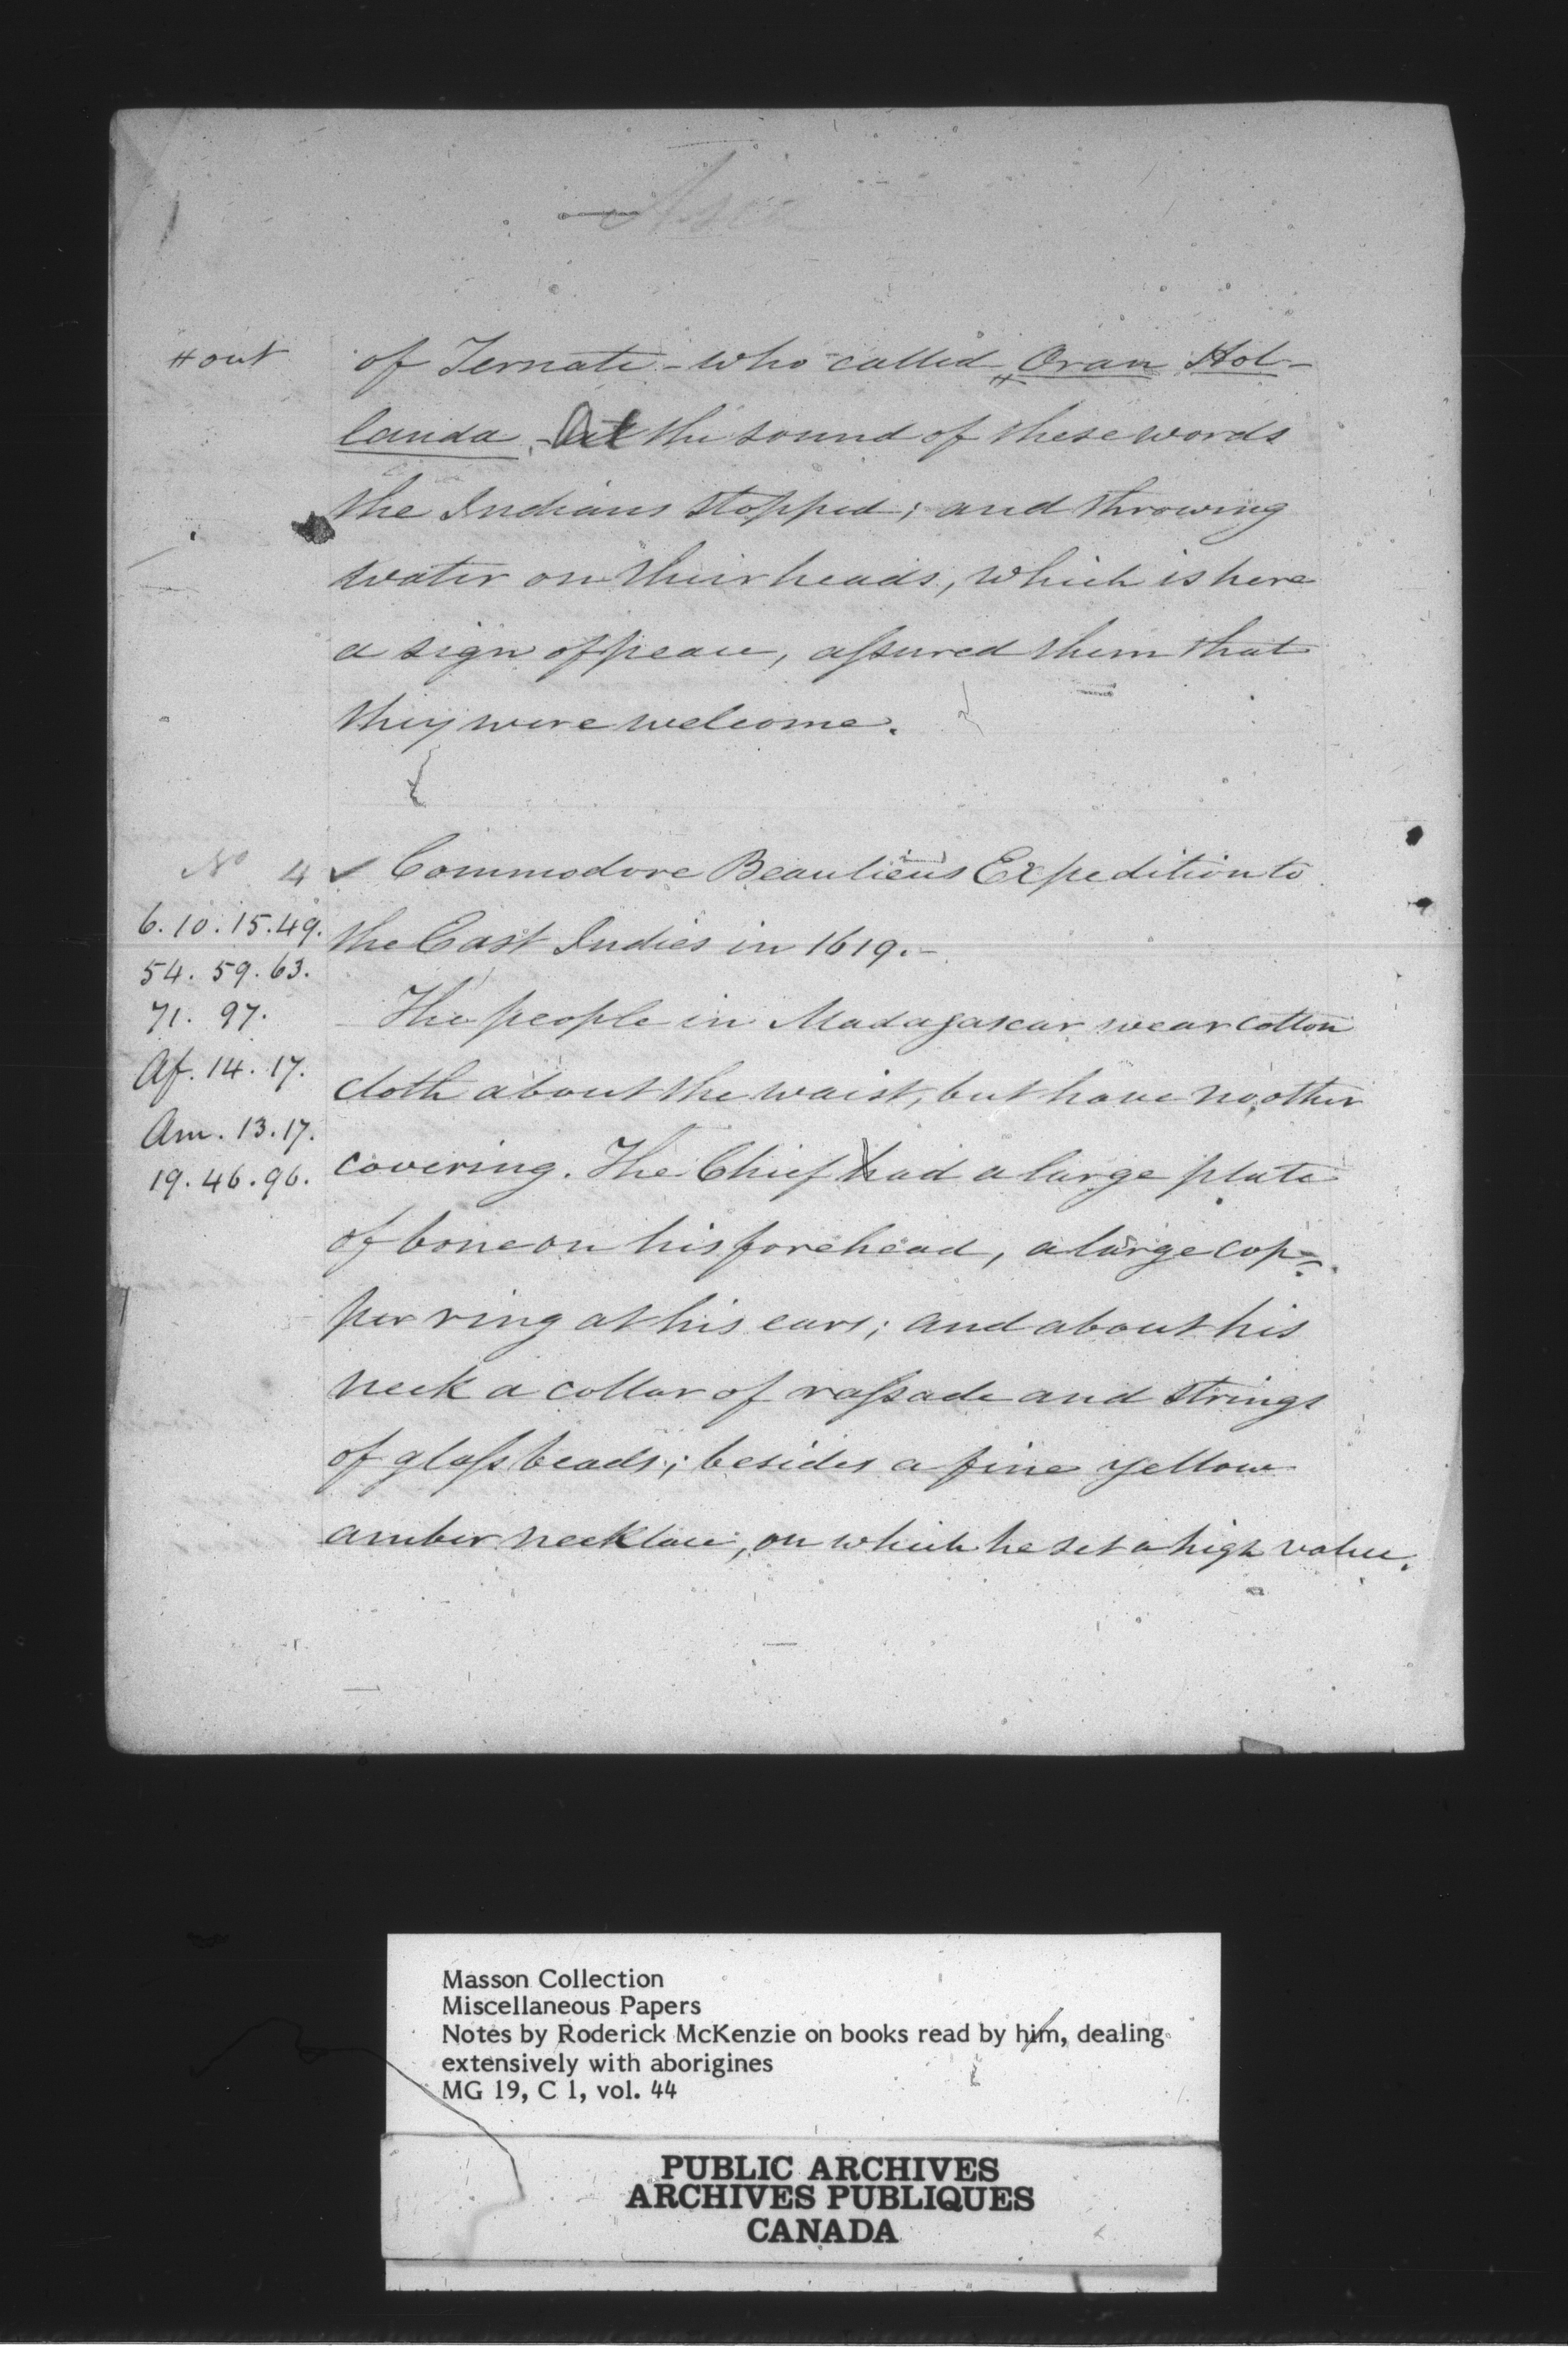 Asia
# out
of Ternate - who called # Oran Hol-
landa, - At the sound of these words
the Indians stopped; and throwing
water on their heads, which is here
a sign of peace, assured them that
they were welcome.
No 4 ✓ Commodore Beaulieus Expedition to
the East Indies in 1619.-
6. 10. 15. 49.
54. 59. 63.
71. 97.
Af. 14. 17.
Am. 13. 17.
19. 46. 96.
The people in Madagascar wear cotton
cloth about the waist, but have no other
covering. The Chief had a large plate
of bone on his forehead, a large cop-
per ring at his ears; and about his
neck a collar of rassade and strings
of glass beads; besides a fine yellow
amber necklace, on which he set a high value.
Masson Collection
Miscellaneous Papers
Notes by Roderick McKenzie on books read by him, dealing
extensively with aborigines
MG 19, C 1, vol. 44
PUBLIC ARCHIVES
ARCHIVES PUBLIQUES
CANADA